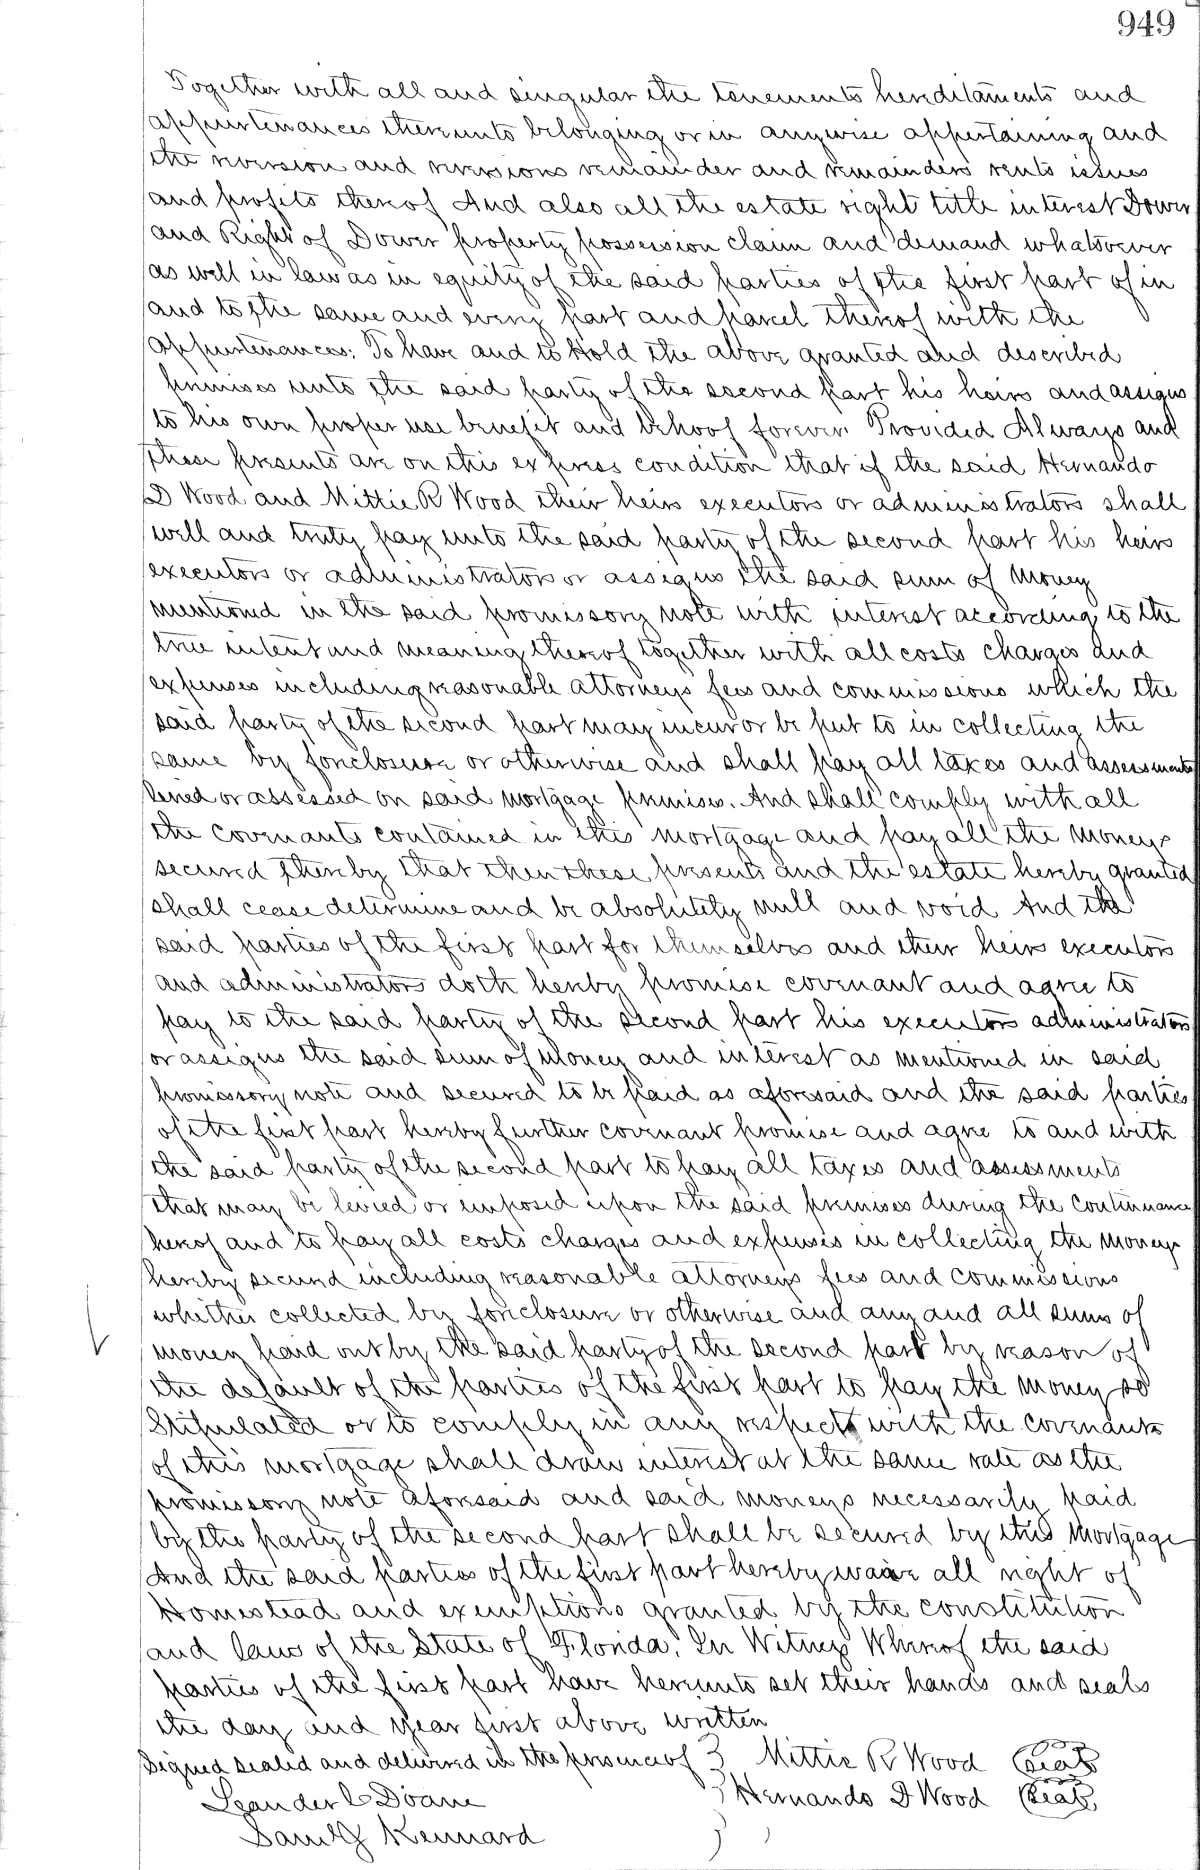 949
Together with all and singular the tenements hereditaments and
appurtenances thereunto belonging or in anywise appertaining and
the reversion and reversions remainder and remainders rents issues
and profits thereof And also all the estate right title interest Dower
and Right of Dower property possession claim and demand whatsoever
as well in law as in equity of the said parties of the first part of in
and to the same and every part and parcel thereof with the
appurtenances: To have and to Hold the above granted and described
premises unto the said party of the second part his heirs and assigns
to his own proper use benefit and behoof forever Provided Always and
these presents are on this express condition that if the said Hernando
D Wood and Mittie R Wood their heirs executors or administrators shall
well and truly pay unto the said party of the second part his heirs
executors or administrators or assigns the said sum of money
mentioned in the said promissory note with interest according to the
true intent and meaning thereof together with all costs charges and
expenses including reasonable attorneys fees and commissions which the
said party of the second part may incur or be put to in collecting the
same by foreclosure or otherwise and shall pay all taxes and assessments
levied or assessed on said mortgage premises. And shall comply with all
the covenants contained in this mortgage and pay all the moneys
secured thereby that then these presents and the estate hereby granted
shall cease determine and be absolutely null and void And the
said parties of the first part for themselves and their heirs executors
and administrators doth hereby promise covenant and agree to
pay to the said party of the second part his executors administrators
or assigns the said sum of money and interest as mentioned in said
promissory note and secured to be paid as aforesaid and the said parties
of the first part hereby further covenant promise and agree to and with
the said party of the second part to pay all taxes and assessments
that may be levied or imposed upon the said premises during the continuance
hereof and to pay all costs charges and expenses in collecting the moneys
hereby secured including reasonable attorneys fees and commissions
whether collected by foreclosure or otherwise and any and all sums of
money paid out by the said party of the second part by reason of
the default of the parties of the first part to pay the money so
Stipulated or to comply in any respect with the covenants
of this mortgage shall draw interest at the same rate as the
promissory note aforesaid and said moneys necessarily paid
by the party of the second part shall be secured by this mortgage
And the said parties of the first part hereby waive all right of
Homestead and exemptions granted by the constitution
and laws of the State of Florida. In Witness Whereof the said
parties of the first part have hereunto set their hands and seals
the day and year first above written
Signed sealed and delivered in the presence of } Mittie R Wood (Seal)
Leander C Doane } Hernando D Wood (Seal)
Saml J Kennard